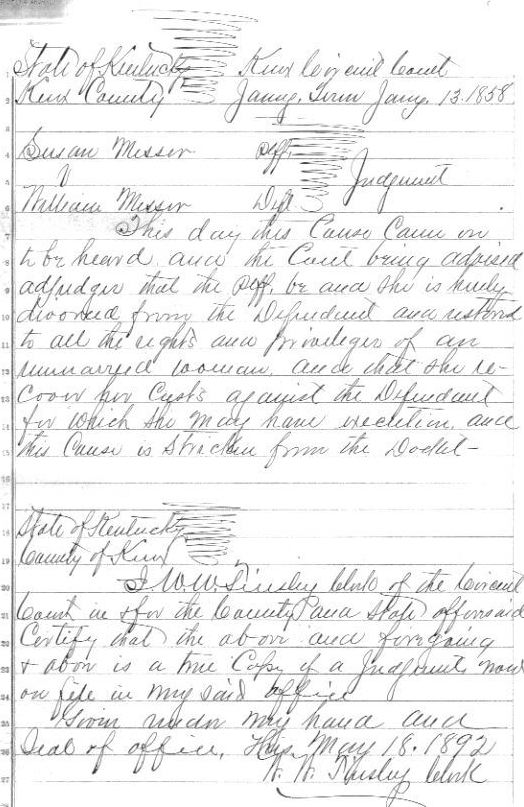 State of Kentucky Knox Circuit Court
Knox County Jany. Term Jany. 13. 1858
Susan Messer Plff.
V Judgment
William Messer Deft
This day this Cause Came on
to be heard and the Court being advised
adjudges that the Plff. be and she is hereby
divorced from the Defendant and restored
to all the rights and privileges of an
unmarried woman, and that she re-
cover her Costs against the Defendant
for which she may have execution and
this Cause is stricken from the Docket -
State of Kentucky
County of Knox
I W. W. Tinsley Clerk of the Circuit
Court in & for the County and State afforesaid
Certify that the above and foregoing
& above is a true Copy of a Judgment, now
on file in my said office
Given under my hand and
Seal of office. This May 18. 1892
W. W. Tinsley Clerk
1
2
3
4
5
6
7
8
9
10
11
12
13
14
15
16
17
18
19
20
21
22
23
24
25
26
27